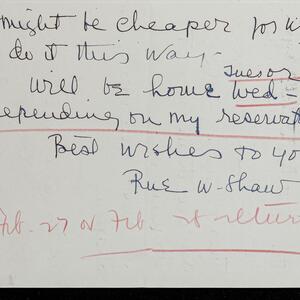 might be cheaper for
do it this way -
Tues or
Will be home Wed -
depending on my reservat
Best wishes to yo
Rue W. Shaw
Feb. 27 or Feb. 28 return